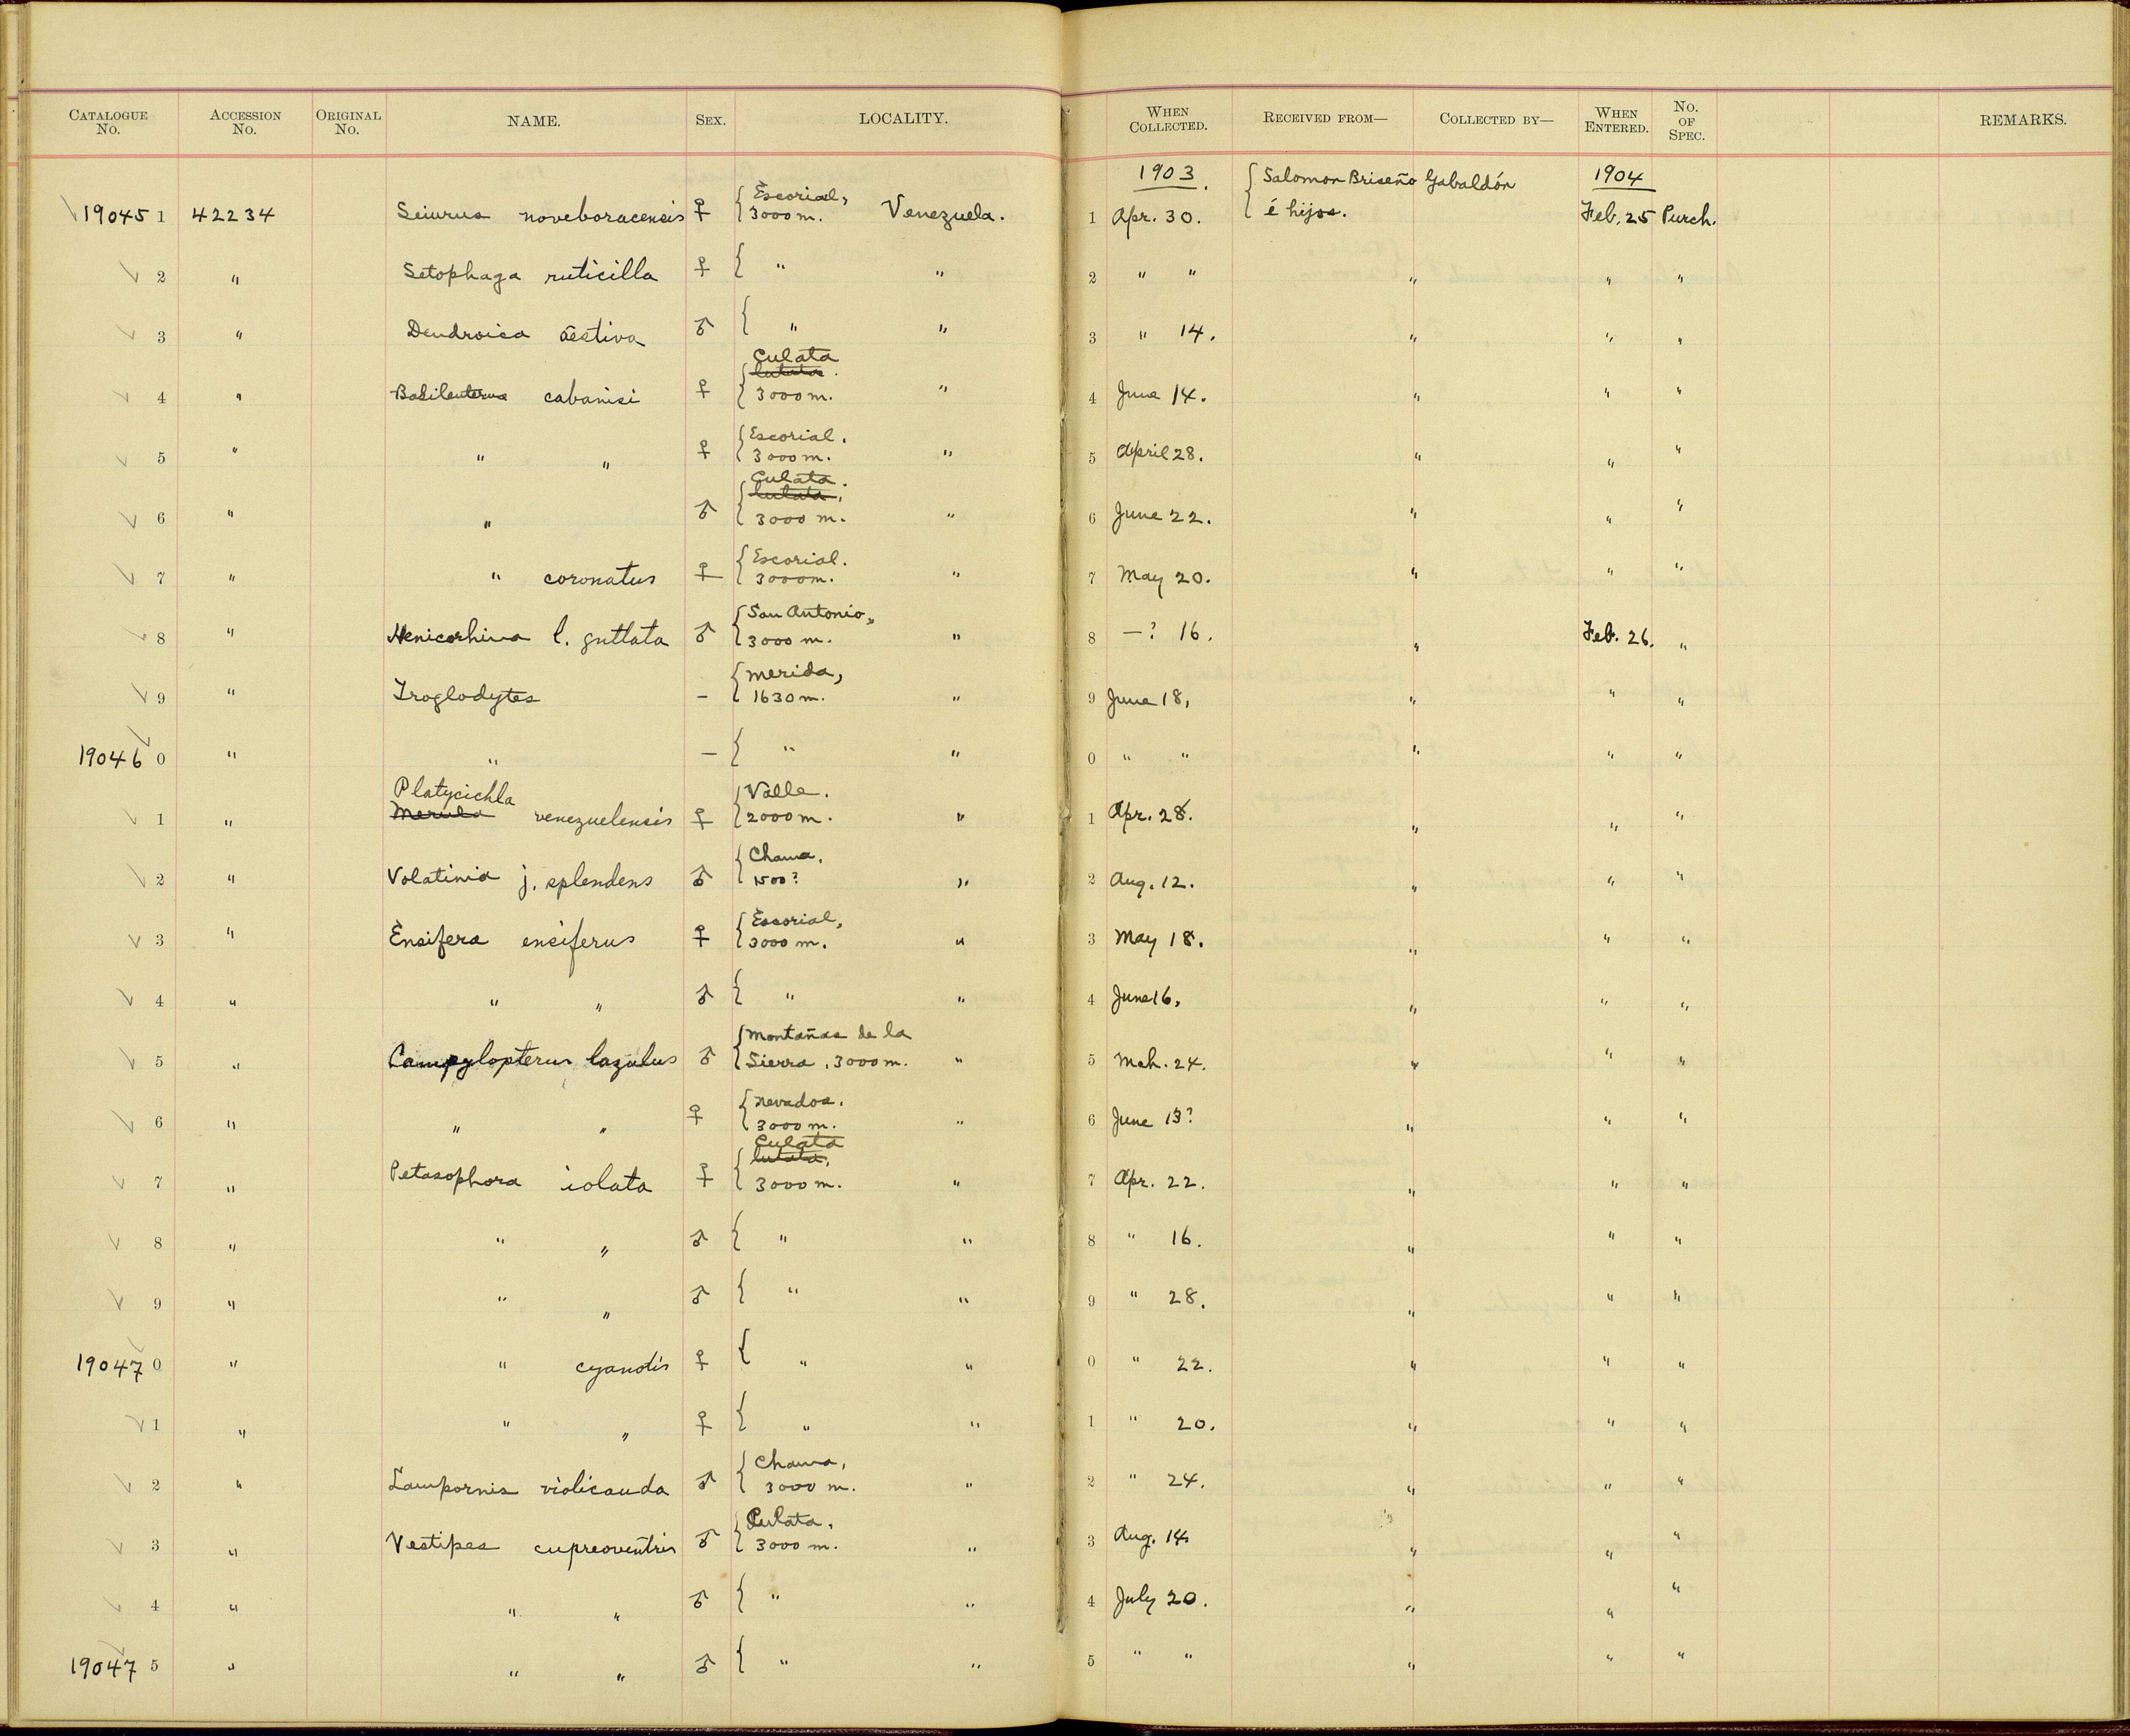 CATALOGUE No. ACCESSION No. ORIGINAL No. NAME. SEX. LOCALITY. WHEN COLLECTED. RECEIVED FROM— COLLECTED BY— WHEN ENTERED. No. OF SPEC. REMARKS.
1903. { Salomon Briseño Gabaldón 1904
√ 19045 1 42234 Seiurus noveboracensis ♀ { Escorial, 3000 m. Venezuela. 1 Apr. 30. é hijos. Feb. 25 Purch.
√ 2 " Setophaga ruticilla ♀ { " " 2 " " " " "
√ 3 " Dendroica aestiva ♂ { " " 3 " 14. " " "
√ 4 " Basileuterus cabanisi ♀ { Culata 3000 m. " 4 June 14. " " "
√ 5 " " " ♀ { Escorial. 3000 m. " 5 April 28. " " "
√ 6 " " ♂ { Culata. 3000 m. " 6 June 22. " " "
√ 7 " " coronatus ♀ { Escorial. 3000 m. " 7 May 20. " " "
√ 8 " Henicorhina l. guttata ♂ { San Antonio, 3000 m. " 8 —? 16. " Feb. 26. "
√ 9 " Troglodytes – { Merida, 1630 m. " 9 June 18, " " "
√ 19046 0 " " – { " " 0 " " " " "
√ 1 " Platycichla Merula venezuelensis ♀ { Valle. 2000 m. " 1 Apr. 28. " " "
√ 2 " Volatinia j. splendens ♂ { Chama, 1500? " 2 Aug. 12. " " "
√ 3 " Ensifera ensiferus ♀ { Escorial, 3000 m. " 3 May 18. " " "
√ 4 " " " ♂ { " " 4 June 16, " " "
√ 5 " Campylopterus lazulus ♂ { Montañas de la Sierra, 3000 m. " 5 Mch. 24. " " "
√ 6 " " " ♀ { Nevados. 3000 m. " 6 June 13? " " "
√ 7 " Petasophora iolata ♀ { Culata 3000 m. " 7 Apr. 22. " " "
√ 8 " " " ♂ { " " 8 " 16. " " "
√ 9 " " " ♂ { " " 9 " 28. " " "
√ 19047 0 " " cyanotis ♀ { " " 0 " 22. " " "
√ 1 " " " ♀ { " " 1 " 20. " " "
√ 2 " Lampornis violicauda ♂ { Chama, 3000 m. " 2 " 24. " " "
√ 3 " Vestipes cupreoventris ♂ { Culata, 3000 m. " 3 Aug. 14 " " "
√ 4 " " " ♂ { " " 4 July 20. " " "
√ 19047 5 " " " ♂ { " " 5 " " " " "